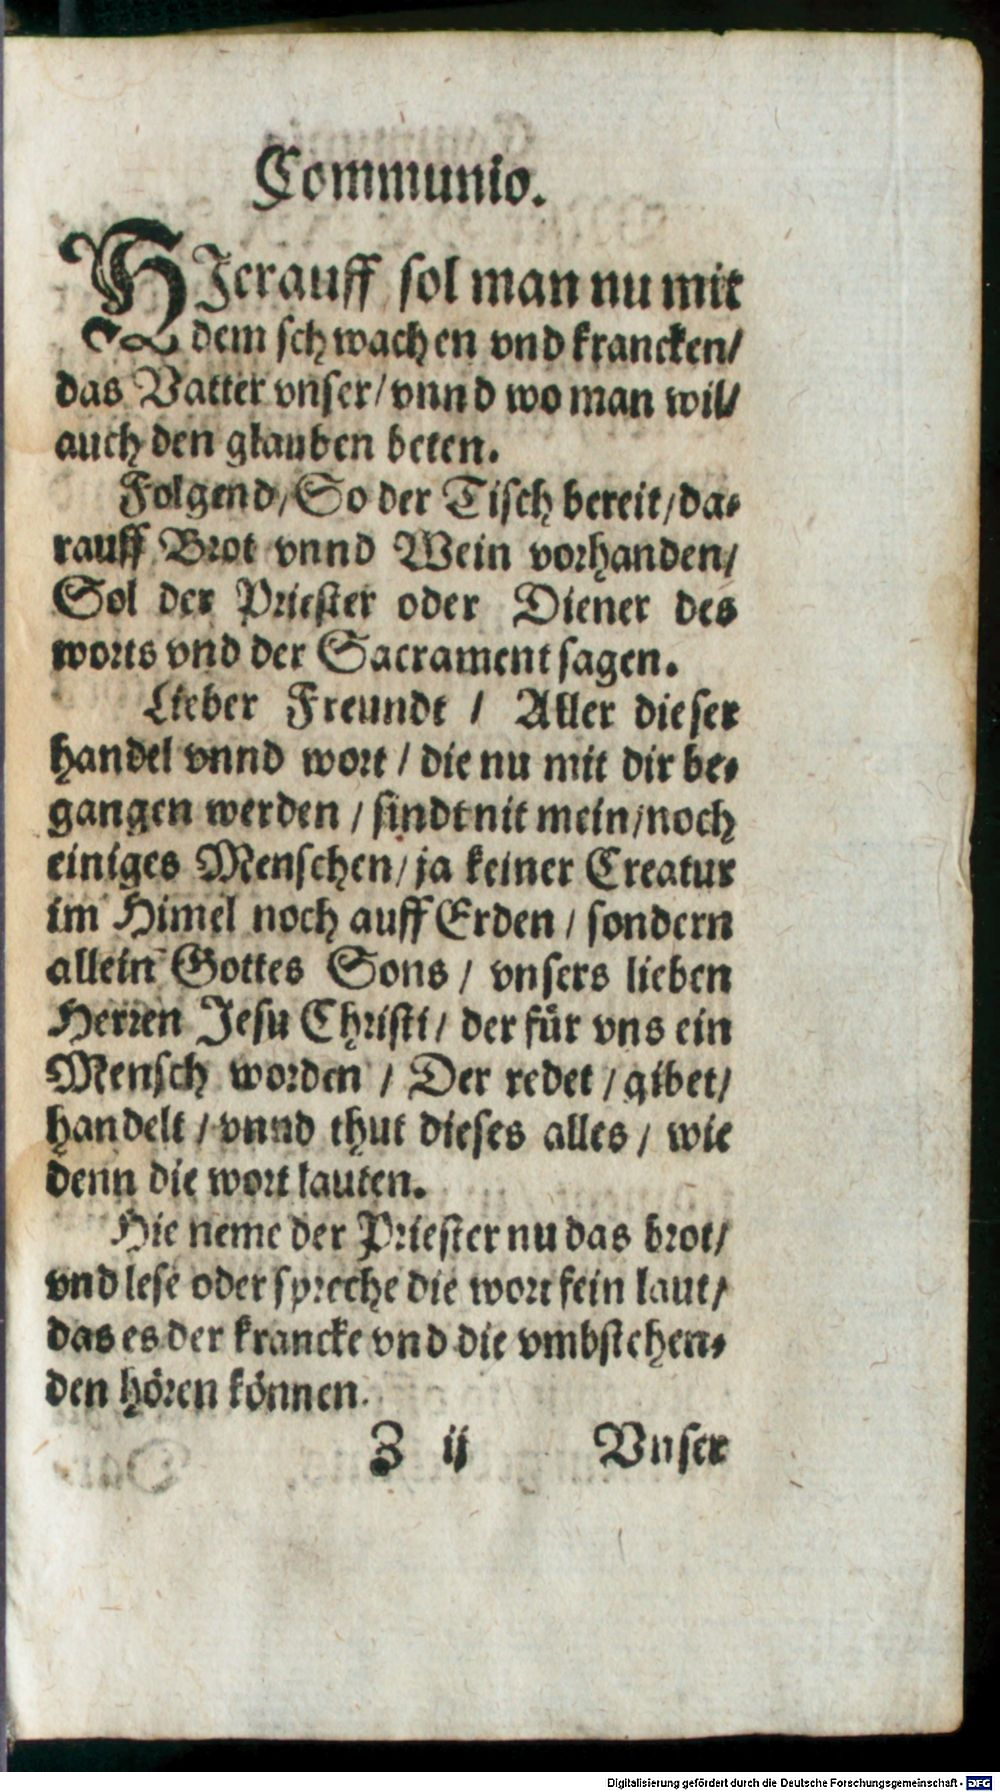 Communio.
HJerauff sol man nu mit
dem schwachen vnd krancken/
das Vatter vnser/vnnd wo man wil/
auch den glauben beten.
Folgend/So der Tisch bereit/da-
rauff Brot vnnd Wein vorhanden/
Sol der Priester oder Diener des
worts vnd der Sacrament sagen.
Lieber Freundt / Aller dieser
handel vnnd wort / die nu mit dir be-
gangen werden / sindt nit mein/noch
einiges Menschen/ja keiner Creatur
im Himel noch auff Erden / sondern
allein Gottes Sons / vnsers lieben
Herren Jesu Christi/ der für vns ein
Mensch worden / Der redet / gibet/
handelt / vnnd thut dieses alles / wie
denn die wort lauten.
Hie neme der Priester nu das brot/
vnd lese oder spreche die wort fein laut/
das es der krancke vnd die vmbstehen-
den hören können.
Z ij Vnser
Digitalisierung gefördert durch die Deutsche Forschungsgemeinschaft - DFG